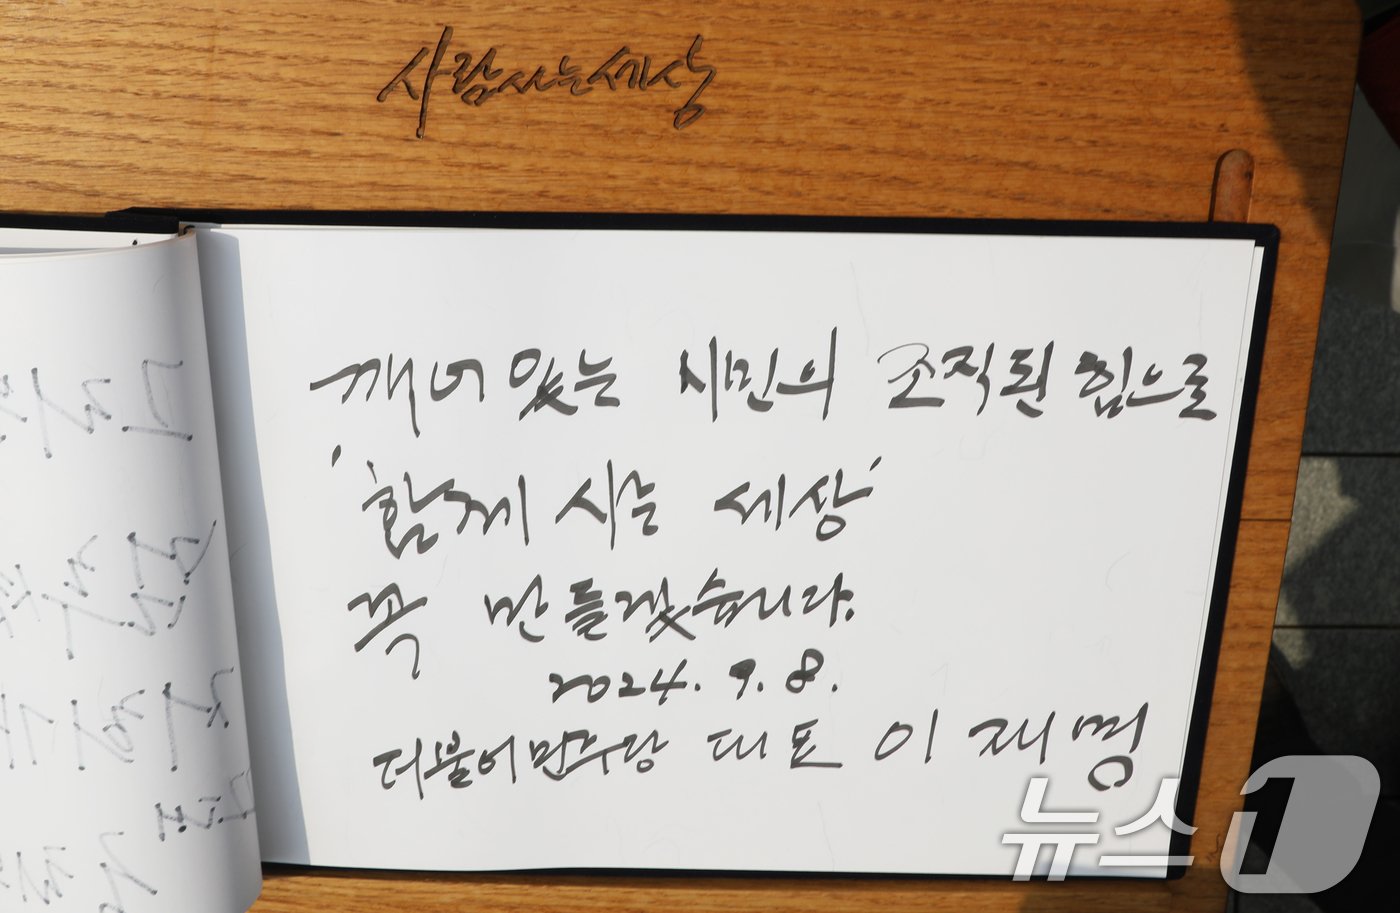 사람사는세상
깨어있는 시민의 조직된 힘으로
'함께 사는 세상'
꼭 만들겠습니다.
2024. 9. 8.
더불어민주당 대표 이재명
뉴스1